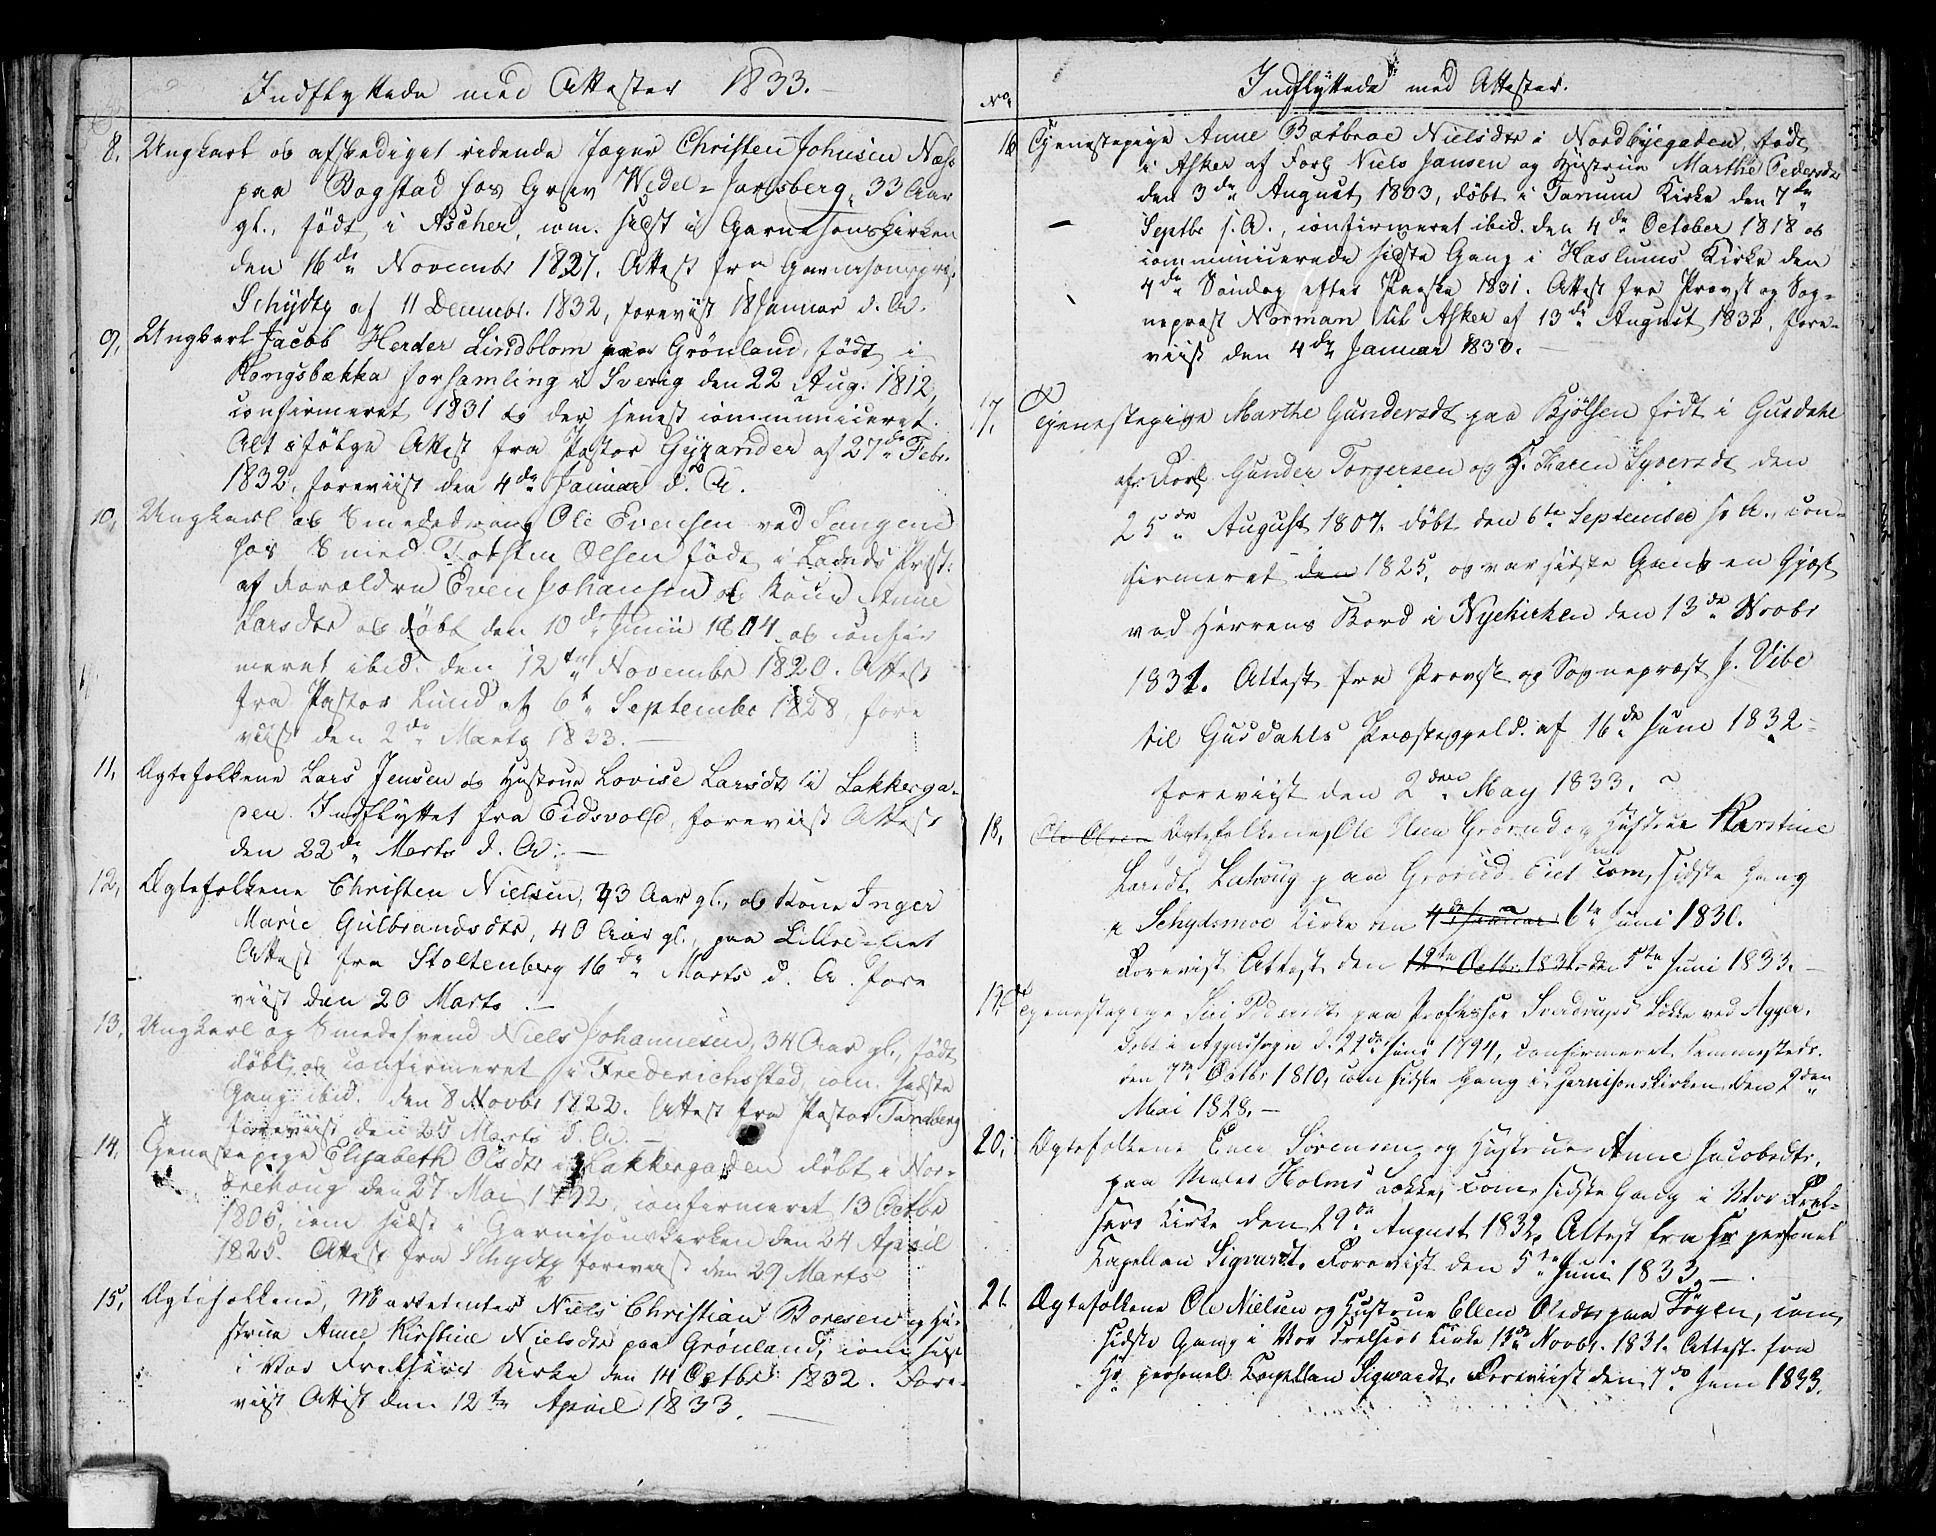 Indflyttede med Attester 1833.
8. Ungkarl og afskediget ridende Jæger Christen Johnsen Næss
paa Bogstad hos Grev Wedel-Jarlsberg, 33 Aar
gl., født i Ascher, com. sidst i Garnisonskirken
den 16de Novembr 1827. Attest fra Garnisonspr:
Schydtz af 11 Decembr. 1832, foreviist 18 Januar d. A.
9, Ungkarl Jacob Herder Lindblom paa Grönland, født i
Kongsbakka forsamling i Sverig den 22 Aug. 1812,
confirmeret 1831 og der senest communiceret.
Alt ifölge Attest fra Pastor af 27de Febr.
1832, foreviist den 4de Januar d. A.
10, Ungkarl og Smededreng Ole Evensen ved Sangene
hos Smed Torsten Olsen født i Præst:
af Forældre Even Johansen og Kone Anne
Larsdtr og döbt den 10de Junii 1804 og confir
meret ibid. den 12te Novembr 1820. Attest
fra Pastor Lund af 6t September 1828, fore
viist den 2de Marty 1833. —
11, Ægtefolkene Lars Jensen og Hustrue Lovise Larsdtr i Lakkerga-
den. Indflyttet fra Eidsvold, foreviist Attest
den 22de Marts d. A. —
12, Ægtefolkene Christen Nielsen, 43 Aar gl., og Kone Inger
Marie Gulbrandsdtr, 40 Aar gl., paa Lilleö-
Attest fra Stoltenberg 16de Marts d. A. fore
viist den 20 Marts. —
13, Ungkarl og Smedesvend Niels Johannesen, 34 Aar gl., født
döbt, og confirmeret i Frederichsstad, com. sidste
Gang ibid. den 8 Novbr 1822. Attest fra Pastor Tandberg
foreviist den 25 Marts d. A. —
14, Tjenestepige Elisabeth Olsdtr i Lakkergaden döbt i Nor-
den 27 Mai 1792, confirmeret 13 Octbr
1805, com sidst i Garnisonskirken den 24 April
1825. Attest fra Schydtz foreviist den 29 Marts
15, Ægtefolkene, Niels Christian Boresen og Hu-
strue Anne Kirstine Nielsdtr paa Grönland, com sidst
i Vor Frelsers Kirke den 14 Octbr 1832. Fore-
viist Attest den 12te April 1833. —
No. Indflyttede med Attester.
16 Tjenestepige Anne Barbroe Nielsdtr i Nordbyegaden, født
i Asker af Forl Niels Jansen og Hustrue Marthe Pedersdtr
den 3de August 1803, döbt i Tanum Kirke den 7de
Septbr s. A., confirmeret ibid. den 4de October 1818 og
communicerede sidste Gang i Haslums Kirke den
4de Söndag efter Paaske 1831. Attest fra Provst og Sog-
nepræst Norman til Asker af 13de August 1832, fore-
viist den 4de Januar 1833. —
17, Tjenestepige Marthe Gundersdt paa Kjölsen født i Gusdahl
af Forl Gunder Torgersen og H. Karen Syversdt den
25de August 1807. döbt den 6te September s. A., con-
firmeret den 1825, og var sidste Gang en Gjæst
ved Herrens Bord i Nykirken den 13de Novbr
1831. Attest fra Provst og Sognepræst J. Vibe
til Gusdahls Præstegjeld. af 16de Juni 1832-
foreviist den 2den May 1833.
18, Ole Olsen Ægtefolkene, Ole Olsen Grorud og Hustrue Karstine
Larsdt. paa Grorud com, sidste Gang
i Schydsmoe Kirke den 4de Januar 6te Juni 1830.
Forevist Attest den 12te Octbr 1831. den 5te Juni 1833. —
19. Tjenestepige Siri Pedersdt paa Professor Sverdrups Lökke ved Agger,
döbt i Aggersogn d. 21de Juni 1794, confirmeret sammesteds.
den 7de Octbr 1810, com sidste Gang i Garnisonskirken, den 2den
Mai 1828. —
20, Ægtefolkene Sörensen og Hustrue Anne Jacobsdtr,
paa Maler Holms Løkke, com, sidste Gang i Vor Frel-
sers Kirke den 29de August 1832. Attest fra Hr personel
Kapellan Sigvardt. Forevist den 5te Juni 1833. —
21. Ægtefolkene Ole Nielsen og Hustrue Ellen Olsdtr paa Töyen, com,
sidste Gang i Vor Frelsers Kirke 13de Novbr. 1831. Attest fra
Hr personel Kapellan Sigwardt. Foreviist den 7de Juni 1833.